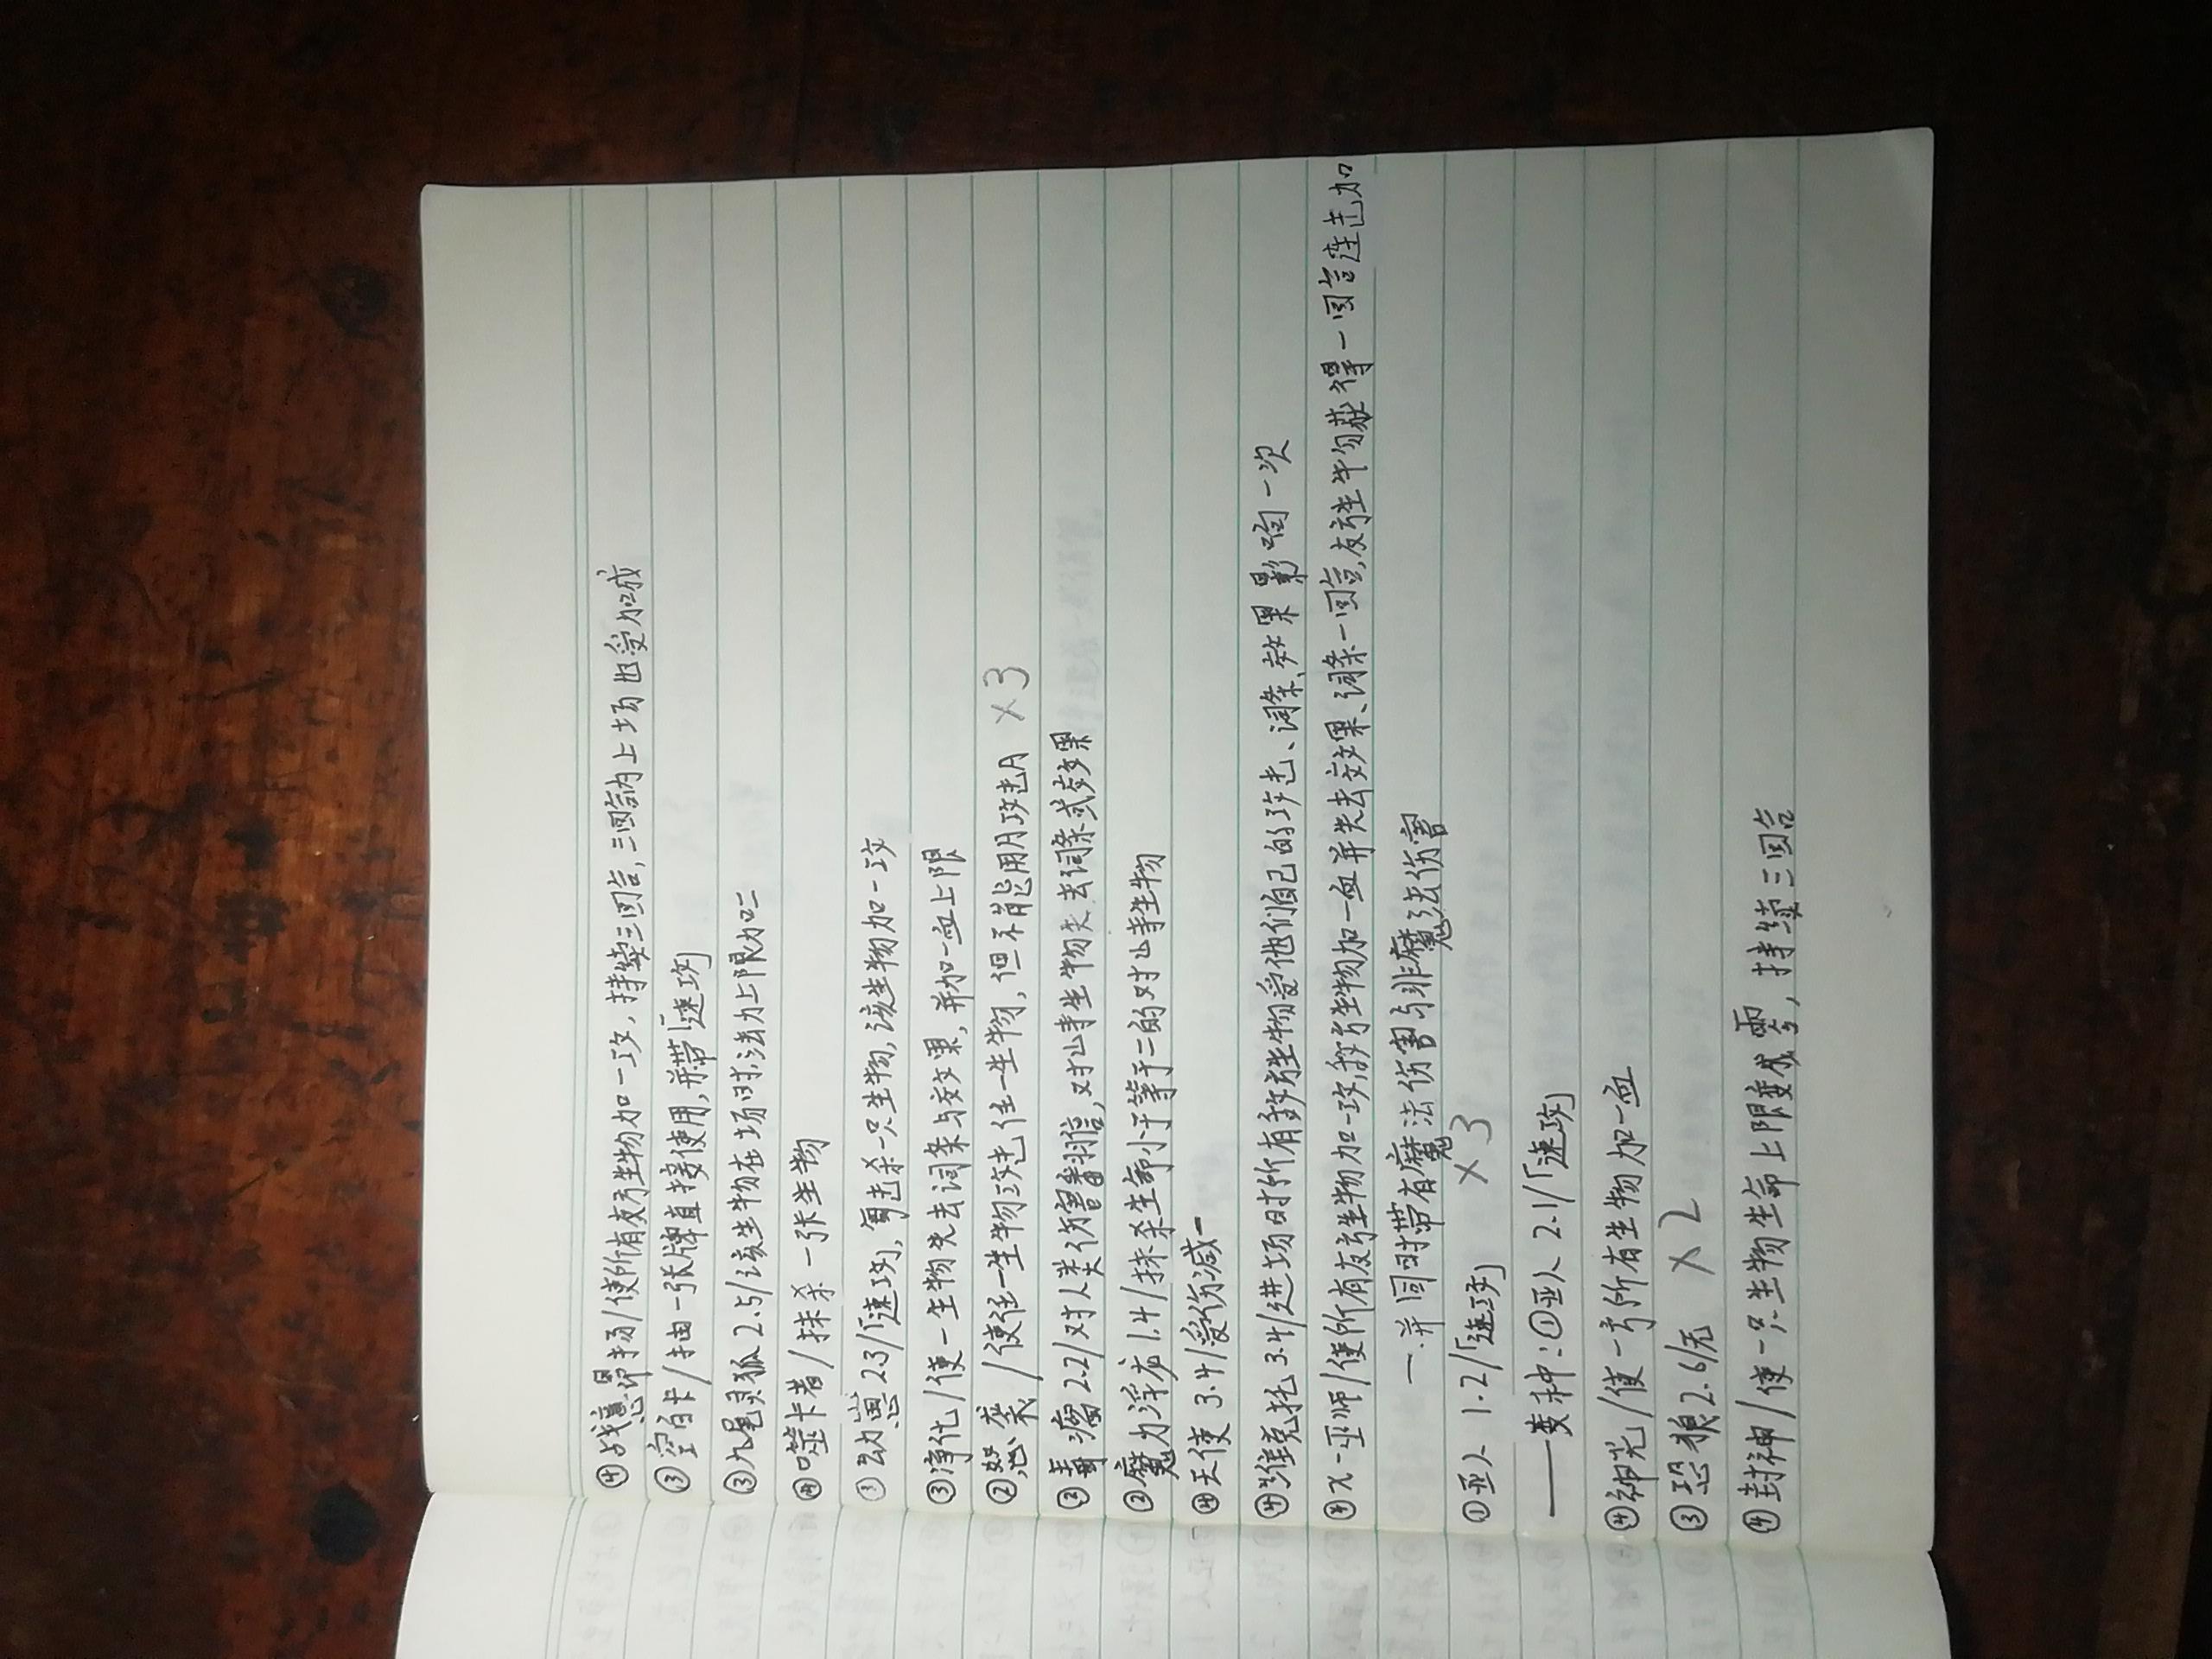 ④战意昂扬/使所有友方生物加一攻，持续三回合，三回合内上场也受加成
③空白卡/抽一张牌直接使用，并带「速攻」
③九尾灵狐2.5/该生物在场时，法力上限加二
④噬卡者/抹杀一张生物
①幼崽2.3/「速攻」，每击杀一只生物，该生物加一攻
③净化/使一生物失去词条与效果，并加一血上限
②怒袭/使任一生物攻击任一生物，但不能用月攻击A ×3
②毒瘤2.2/对人类伤害翻倍，对山寺生物失去词条或效果
②魔力浮龙1.4/抹杀生命小于等于二的对山寺生物
④天使3.4/受伤减一
④维克托3.4/进场时所有敌方生物受他们自己的攻击、词条、效果影响一次
④X-巫师/使所有友方生物加一攻，敌方生物加一血并失去效果、词条一回合，友方生物获得一回合连击加
一，并同时带有魔法伤害与非魔法伤害
①亚人1.2/「速攻」 ×3
——变种：①亚人2.1/「速攻」
④神光/使一方所有生物加一血
③恐狼2.6/无 ×2
④封神/使一只生物生命上限变成零，持续三回合